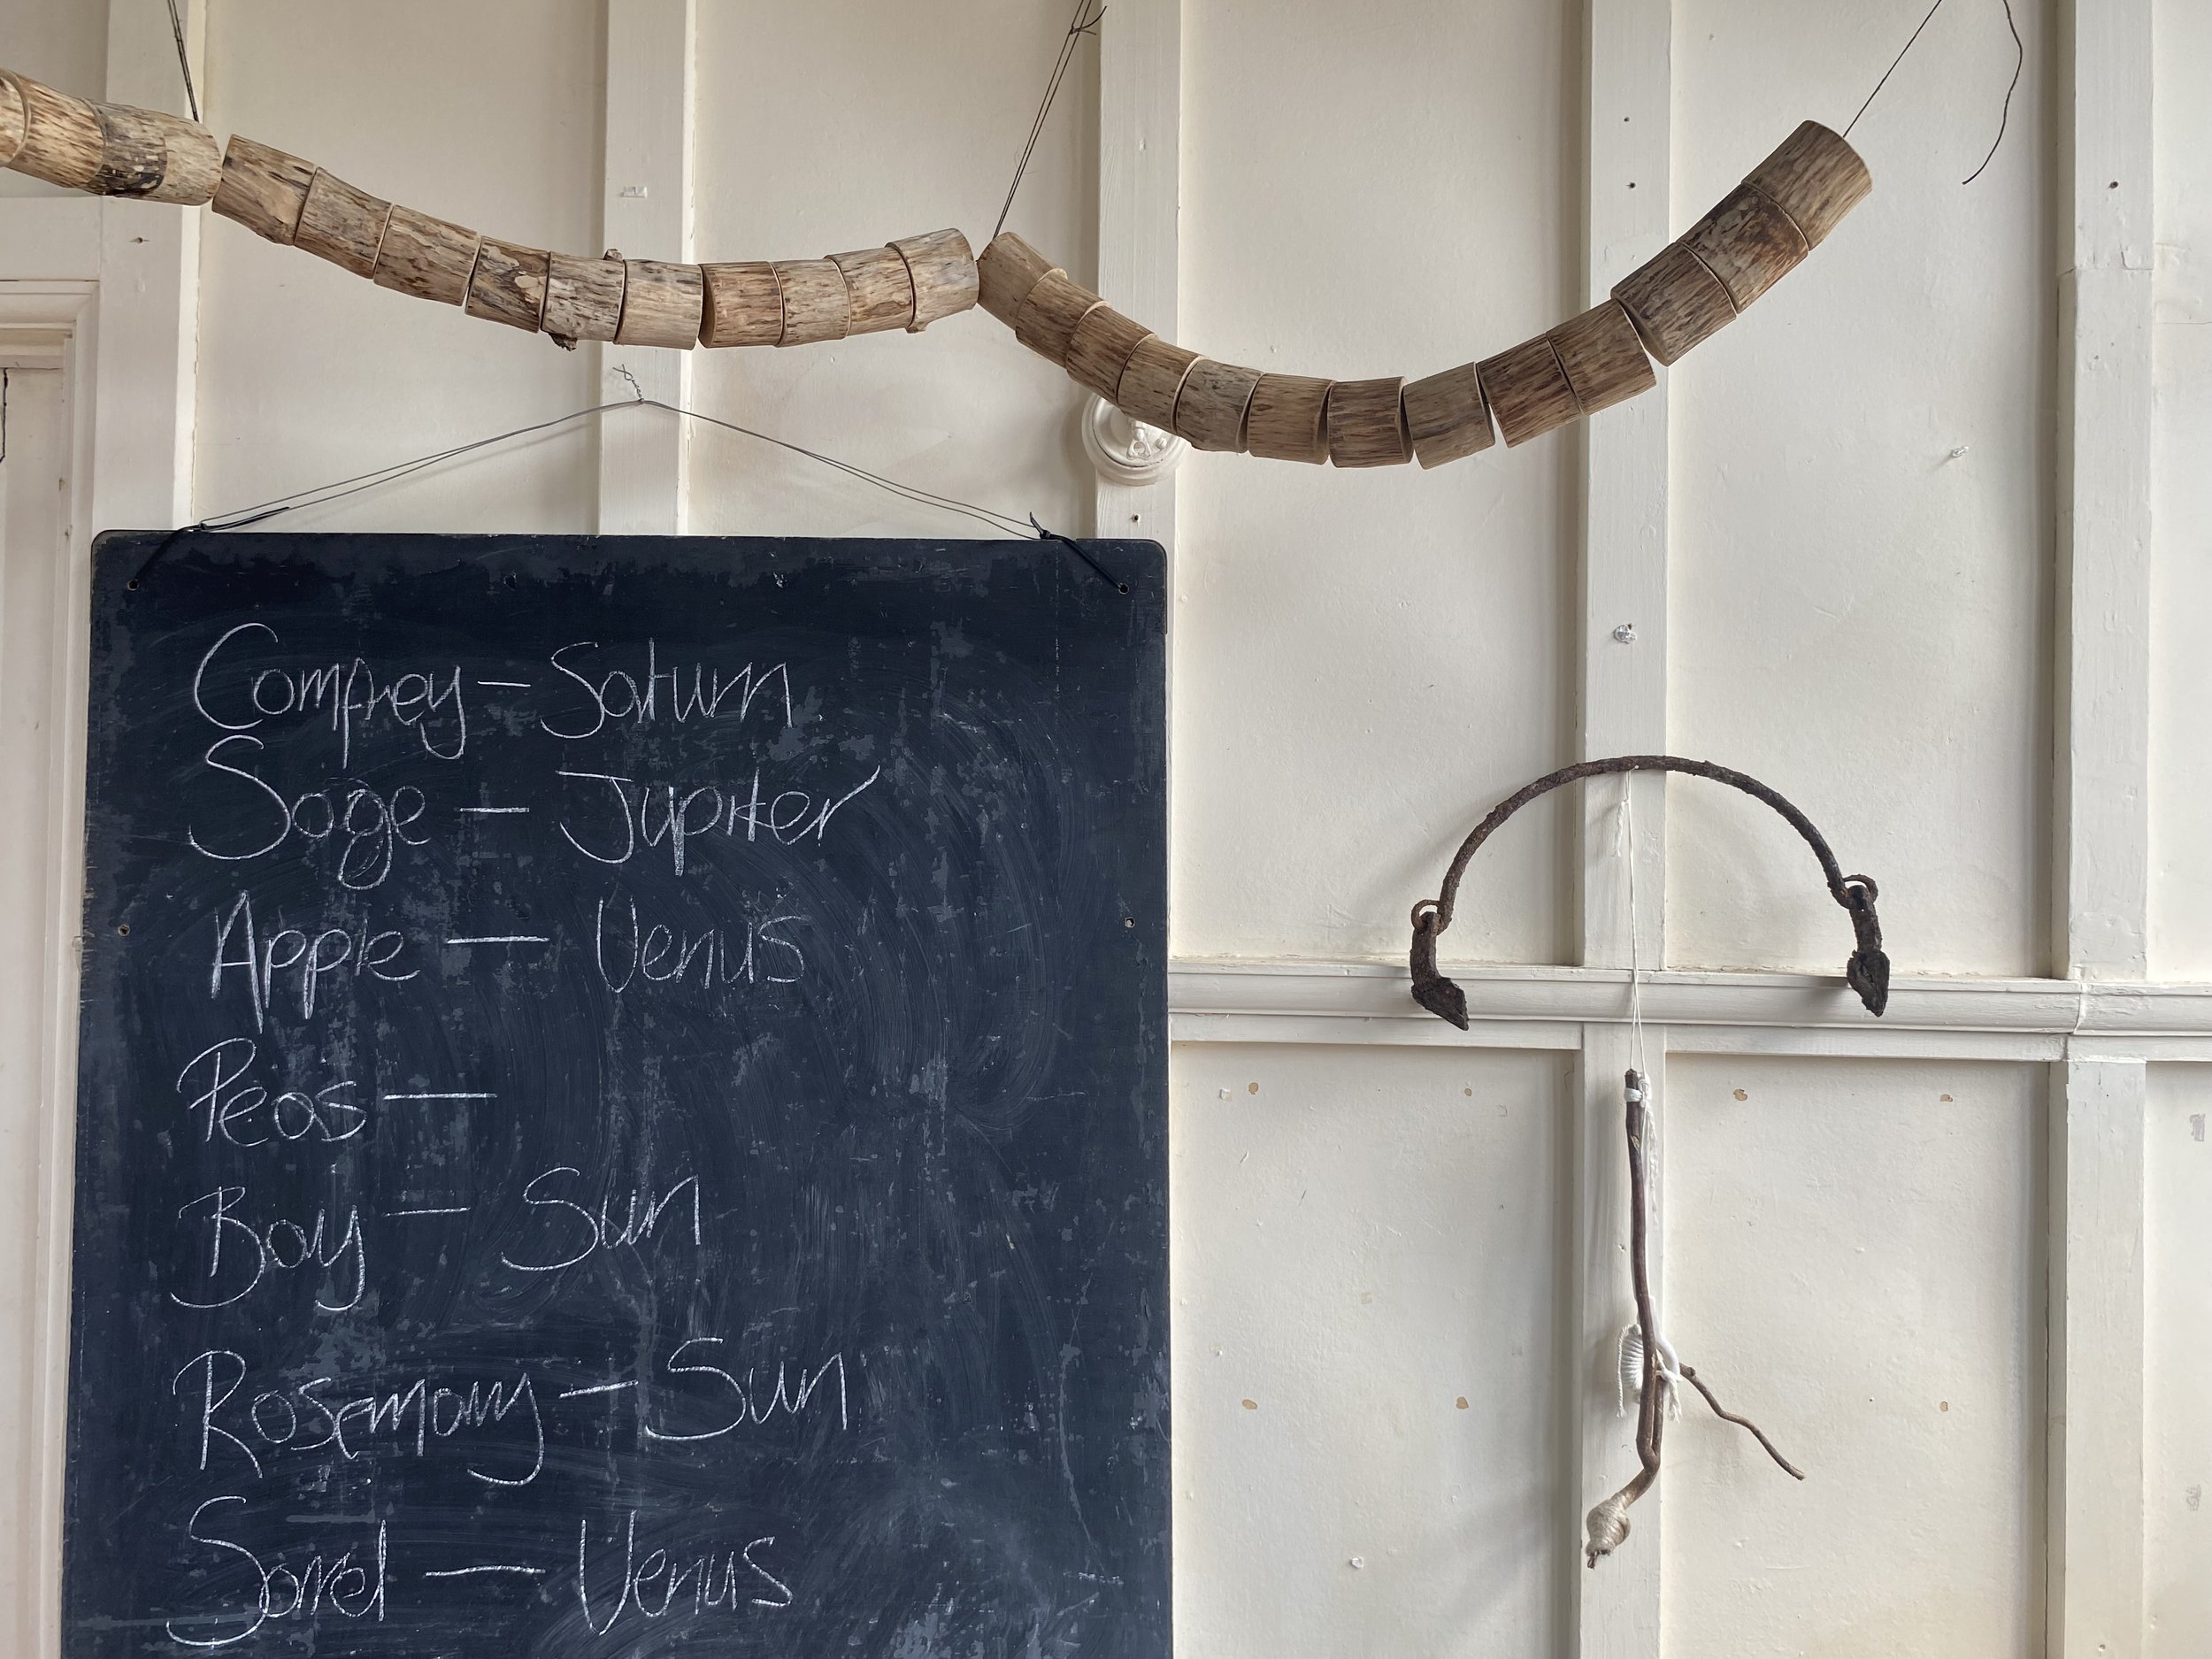 Comfrey – Saturn
Sage – Jupiter
Apple – Venus
Peas –
Bay – Sun
Rosemary – Sun
Sorrel – Venus